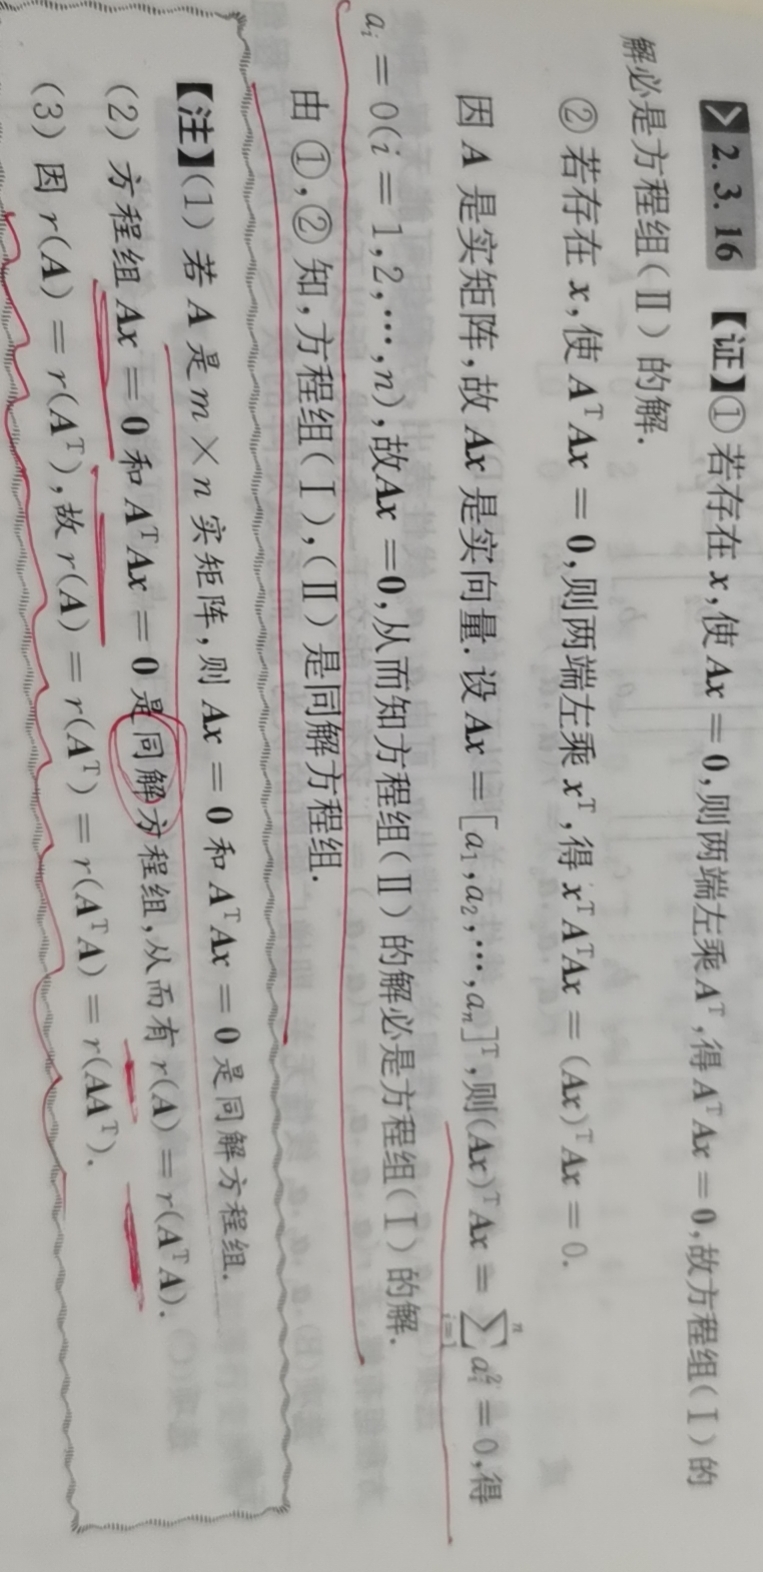 2.3.16 【证】① 若存在 x,使 Ax = 0,则两端左乘 Aᵀ,得 AᵀAx = 0,故方程组(Ⅰ)的
解必是方程组(Ⅱ)的解.
② 若存在 x,使 AᵀAx = 0,则两端左乘 xᵀ,得 xᵀAᵀAx = (Ax)ᵀAx = 0.
因 A 是实矩阵,故 Ax 是实向量.设 Ax = [a₁,a₂,⋯,aₙ]ᵀ,则(Ax)ᵀAx = ∑ⁿᵢ₌₁ aᵢ² = 0,得
aᵢ = 0(i = 1,2,⋯,n),故Ax = 0,从而知方程组(Ⅱ)的解必是方程组(Ⅰ)的解.
由 ①,② 知,方程组(Ⅰ),(Ⅱ)是同解方程组.
【注】(1) 若 A 是 m × n 实矩阵,则 Ax = 0 和 AᵀAx = 0 是同解方程组.
(2) 方程组 Ax = 0 和 AᵀAx = 0 是同解方程组,从而有 r(A) = r(AᵀA).
(3) 因 r(A) = r(Aᵀ),故 r(A) = r(Aᵀ) = r(AᵀA) = r(AAᵀ).